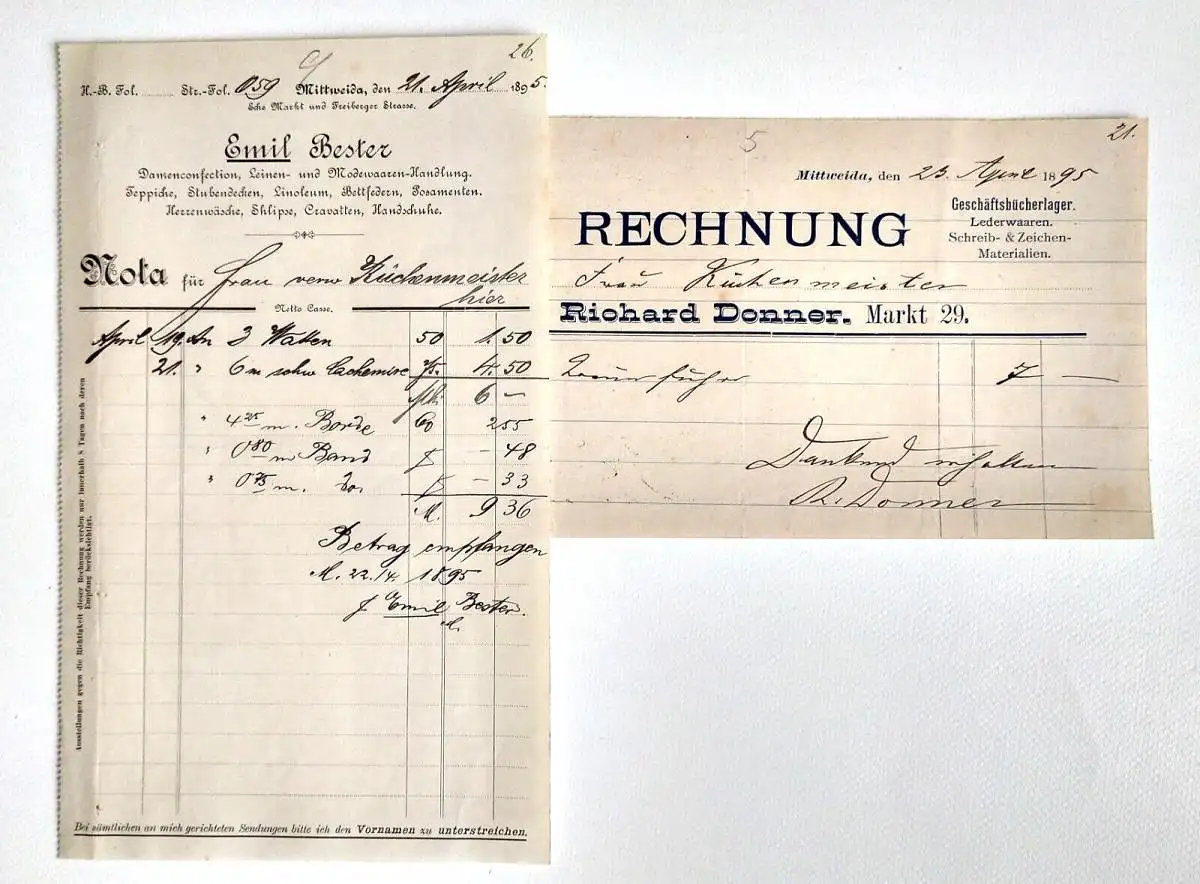 26.
H.-B. Fol. Str.-Fol. 059 Mittweida, den 21. April 1895.
Ecke Markt und Freiberger Strasse.
Emil Bester
Damenconfection, Leinen- und Modewaaren-Handlung.
Teppiche, Stubendecken, Linoleum, Bettfedern, Posamenten.
Herrenwäsche, Shlipse, Cravatten, Handschuhe.
Nota für Frau verw Küchenmeister
hier
Netto Casse.
April 19. An 3 Watten 50 1.50
21. " 6 m schw Cachemire 75. 4.50
Mk. 6 –
" 4 25 m. Borde 60 2 55
" 0 80 m Band – 48
" 0 75 m. – 33
M. 9 36
Betrag empfangen
M. 22./4. 1895
Emil Bester.
Ausstellungen gegen die Richtigkeit dieser Rechnung werden nur innerhalb 8 Tagen nach deren
Empfang berücksichtigt.
Bei sämtlichen an mich gerichteten Sendungen bitte ich den Vornamen zu unterstreichen.
5
21.
Mittweida, den 23. April 1895
RECHNUNG
Geschäftsbücherlager.
Lederwaaren.
Schreib- & Zeichen-
Materialien.
Frau Küchenmeister
Richard Donner. Markt 29.
7 —
Dankend erhalten
R. Donner